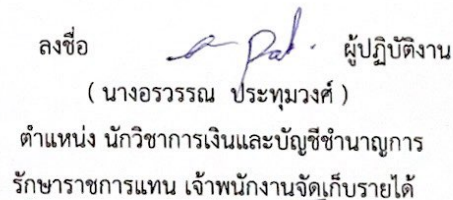 ลงชื่อ ผู้ปฏิบัติงาน
( นางอรวรรณ ประทุมวงศ์ )
ตำแหน่ง นักวิชาการเงินและบัญชีชำนาญการ
รักษาราชการแทน เจ้าพนักงานจัดเก็บรายได้